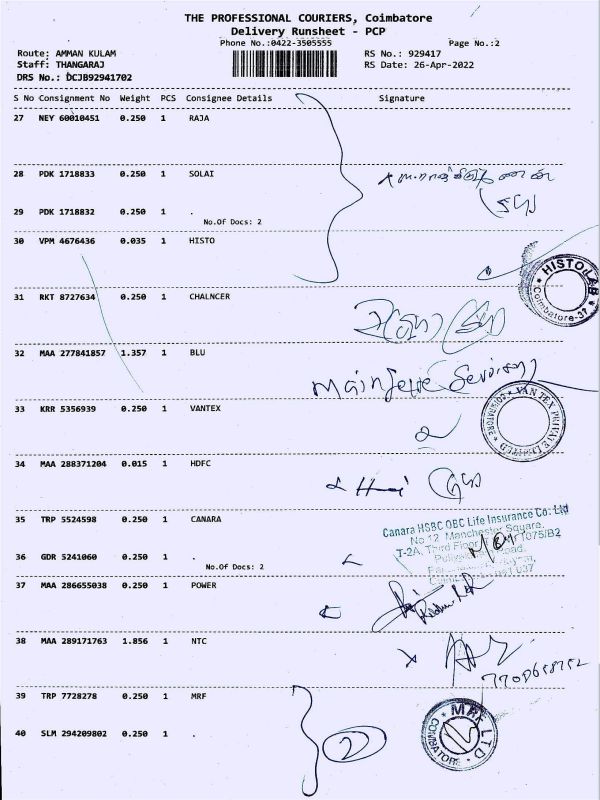 THE PROFESSIONAL COURIERS, Coimbatore
Delivery Runsheet - PCP
Phone No.:0422-3505555 Page No.:2
Route: AMMAN KULAM RS No.: 929417
Staff: THANGARAJ RS Date: 26-Apr-2022
DRS No.: DCJB92941702
S No Consignment No Weight PCS Consignee Details Signature
27 NEY 60010451 0.250 1 RAJA
28 PDK 1718833 0.250 1 SOLAI
29 PDK 1718832 0.250 1 .
No.Of Docs: 2
30 VPM 4676436 0.035 1 HISTO
HISTO LAB
Coimbatore-37
31 RKT 8727634 0.250 1 CHALNCER
32 MAA 277841857 1.357 1 BLU
33 KRR 5356939 0.250 1 VANTEX
VAN TEX PRIVATE LIMITED
COIMBATORE
34 MAA 288371204 0.015 1 HDFC
35 TRP 5524598 0.250 1 CANARA
Canara HSBC OBC Life Insurance Co: Ltd
No 12, Manchester Square,
T-2A, Third Floor
36 GDR 5241060 0.250 1 .
No.Of Docs: 2
37 MAA 286655038 0.250 1 POWER
38 MAA 289171763 1.856 1 NTC
39 TRP 7728278 0.250 1 MRF
40 SLM 294209802 0.250 1 .
2
MRF LTD
COIMBATORE